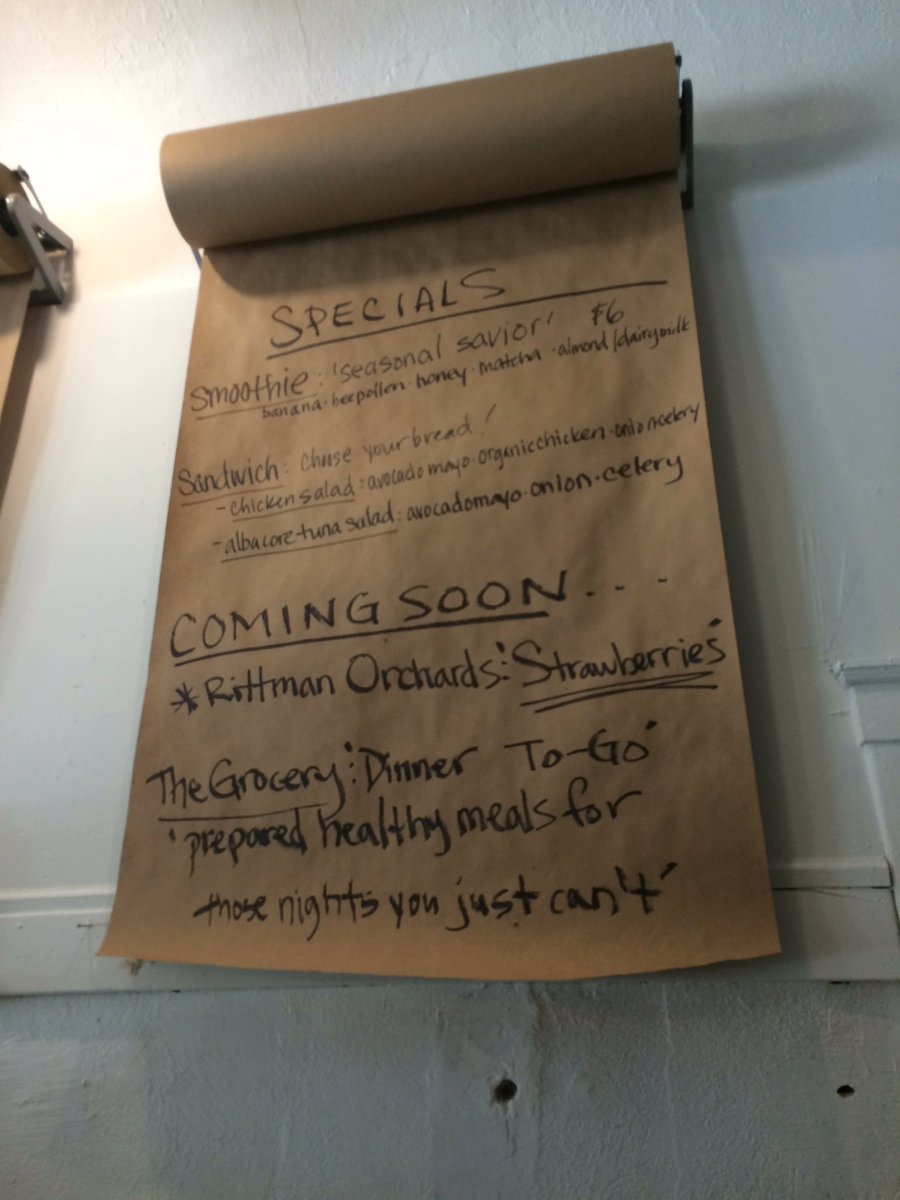 SPECIALS
Smoothie: 'seasonal savior' $6
banana · bee pollen · honey · matcha · almond/dairy milk
Sandwich: chose your bread!
- chicken salad: avocado mayo · organic chicken · onion · celery
- albacore tuna salad: avocado mayo · onion · celery
COMING SOON....
* Rittman Orchards: 'Strawberries'
The Grocery: 'Dinner To-Go'
'prepared healthy meals for
those nights you just can't'